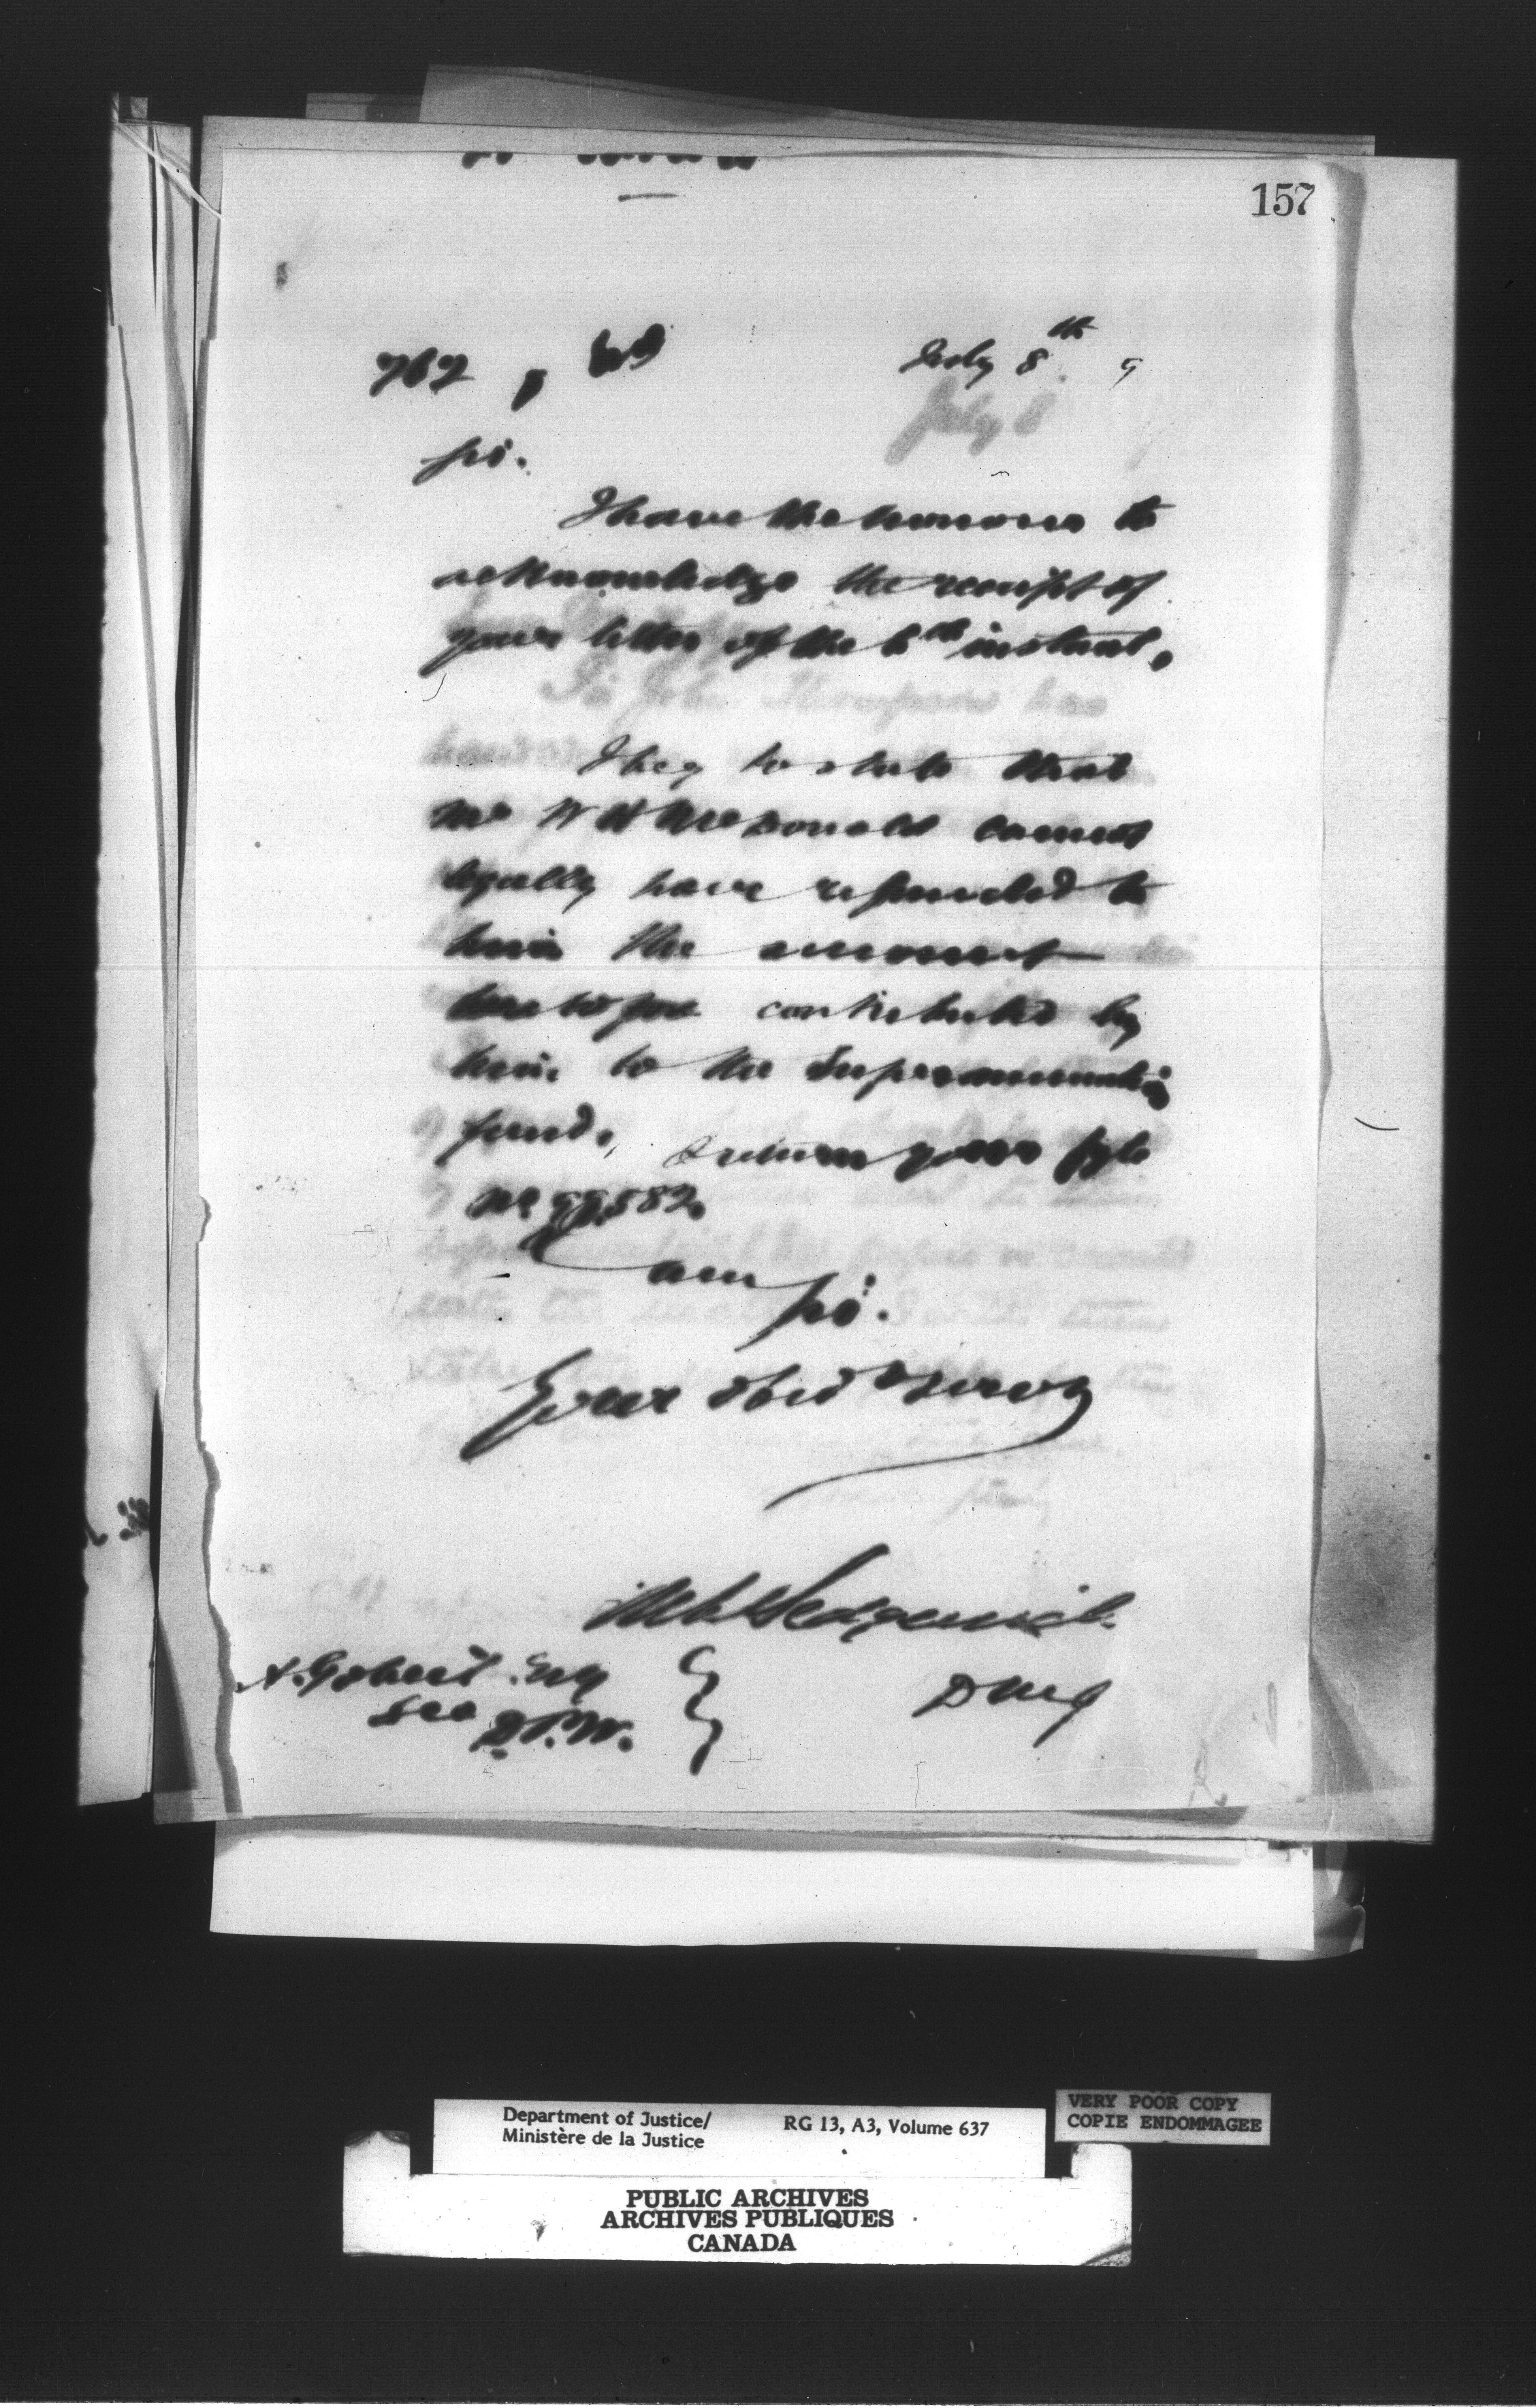 157
767, 89
July 8th 9
Sir.
I have the honour to
acknowledge the receipt of
your letter of the 6th instant.
I beg to state that
Mr W H McDonald cannot
legally have refunded to
him the amount
heretofore contributed by
him to the Superannuation
fund. I return your fyle
No 582.
I am
Sir.
Your obdt servt
Sedgewick
DMJ
A. Gobeil Esq
Sec D.P.W.
Department of Justice/
Ministère de la Justice
RG 13, A3, Volume 637
VERY POOR COPY
COPIE ENDOMMAGEE
PUBLIC ARCHIVES
ARCHIVES PUBLIQUES
CANADA